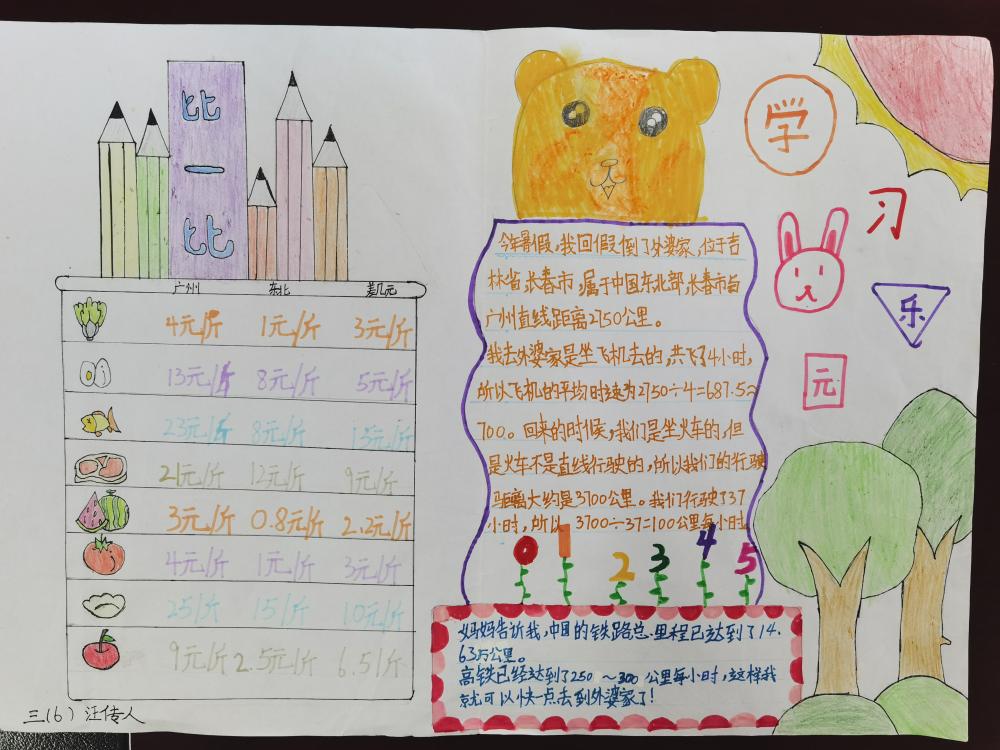 比
一
比
广州 东北 差几元
4元/斤 1元/斤 3元/斤
13元/斤 8元/斤 5元/斤
23元/斤 8元/斤 15元/斤
21元/斤 12元/斤 9元/斤
3元/斤 0.8元/斤 2.2元/斤
4元/斤 1元/斤 3元/斤
25/斤 15/斤 10元/斤
9元/斤 2.5元/斤 6.5/斤
三(6) 汪传人
学
习
乐
元
今年暑假,我回假到了外婆家,位于吉
林省,长春市,属于中国东北部,长春市与
广州直线距离2750公里。
我去外婆家是坐飞机去的,共飞了4小时,
所以飞机的平均时速为2750÷4=687.5≈
700。回来的时候,我们是坐火车的,但
是火车不是直线行驶的,所以我们的行驶
距离大约是3700公里。我们行驶了37
小时,所以 3700÷37=100公里每小时
0 1 2 3 4 5
妈妈告诉我,中国的铁路总里程已达到了14.
63万公里。
高铁已经达到了250~300公里每小时,这样我
就可以快一点去到外婆家了!